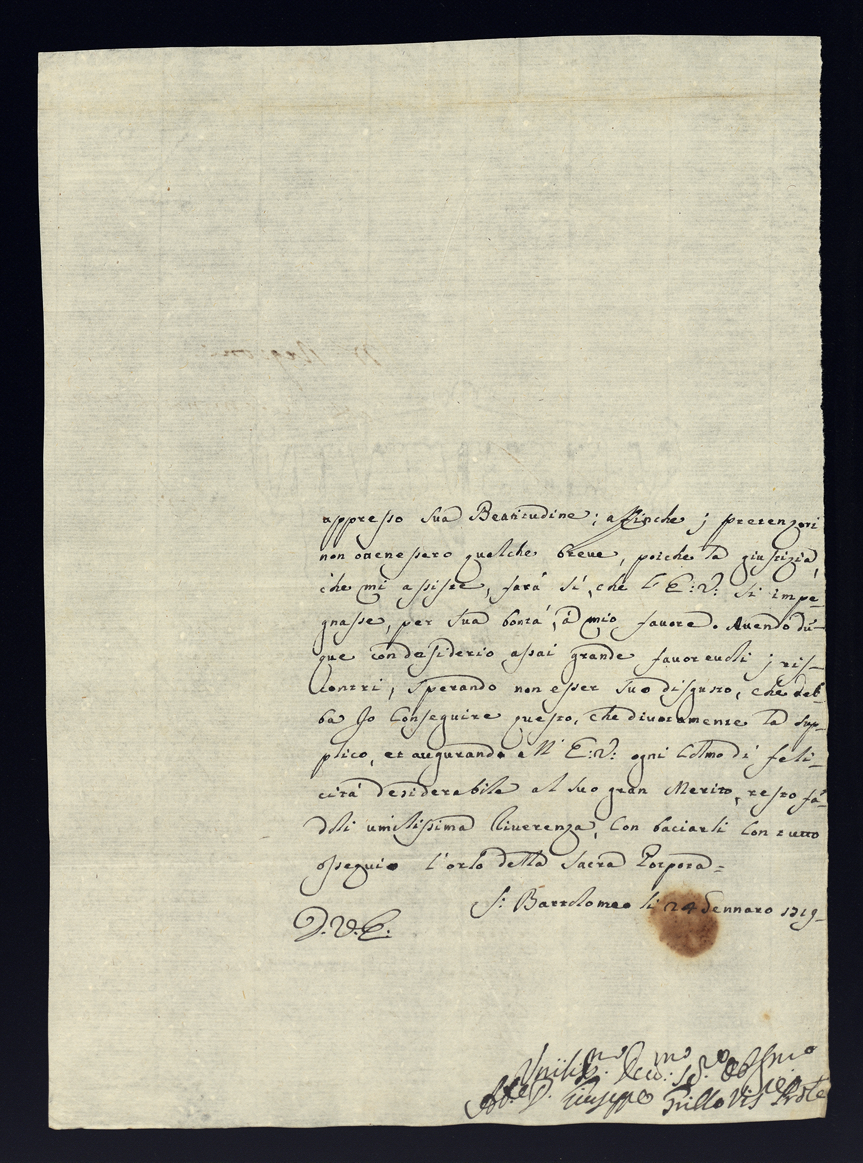 appresso sua Beatitudine; affinche j pretenzori
non otenessero qualche breve, poiche la giustizia,
che mi assiste, farà sì, che l'E:V: si impe-
gnasse, per sua bontà, à mio favore. Avendo dū-
que con desiderio assai grande favorevoli j ris-
contri, sperando non esser suo disgusto, che deb-
ba Jo conseguire questo, che divotamente la sup-
plico, et augurando a ll' E:V: ogni colmo di feli-
cità desiderabile al suo gran Merito, resto fā-
doli umilissima riverenza, con baciarli con tutto
osseguio l'orlo della Sacra Porpora=
S: Bartolomeo li 24 Gennaro 1719-
D.V.E:
Umiliss.mo Dev.mo Se.ro Obl.mo
Ab.e D. Giuseppe Grillo